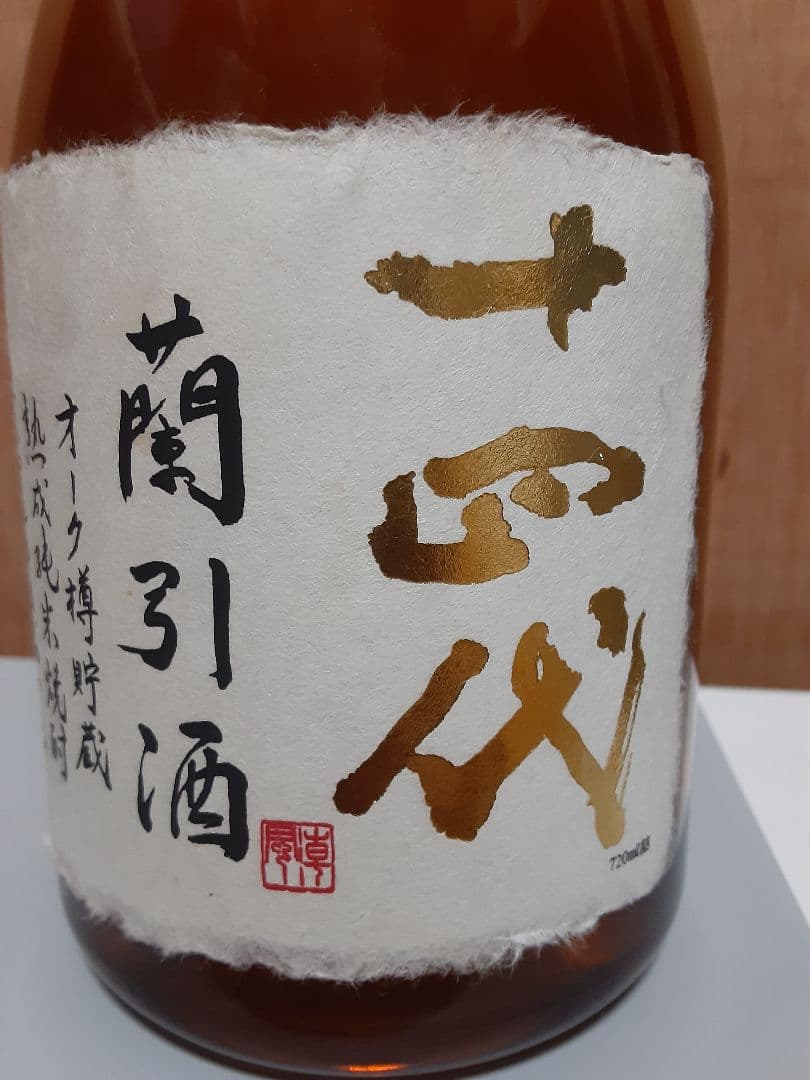 十四代
720ml詰
蘭引酒
オーク樽貯蔵
熟成純米焼酎